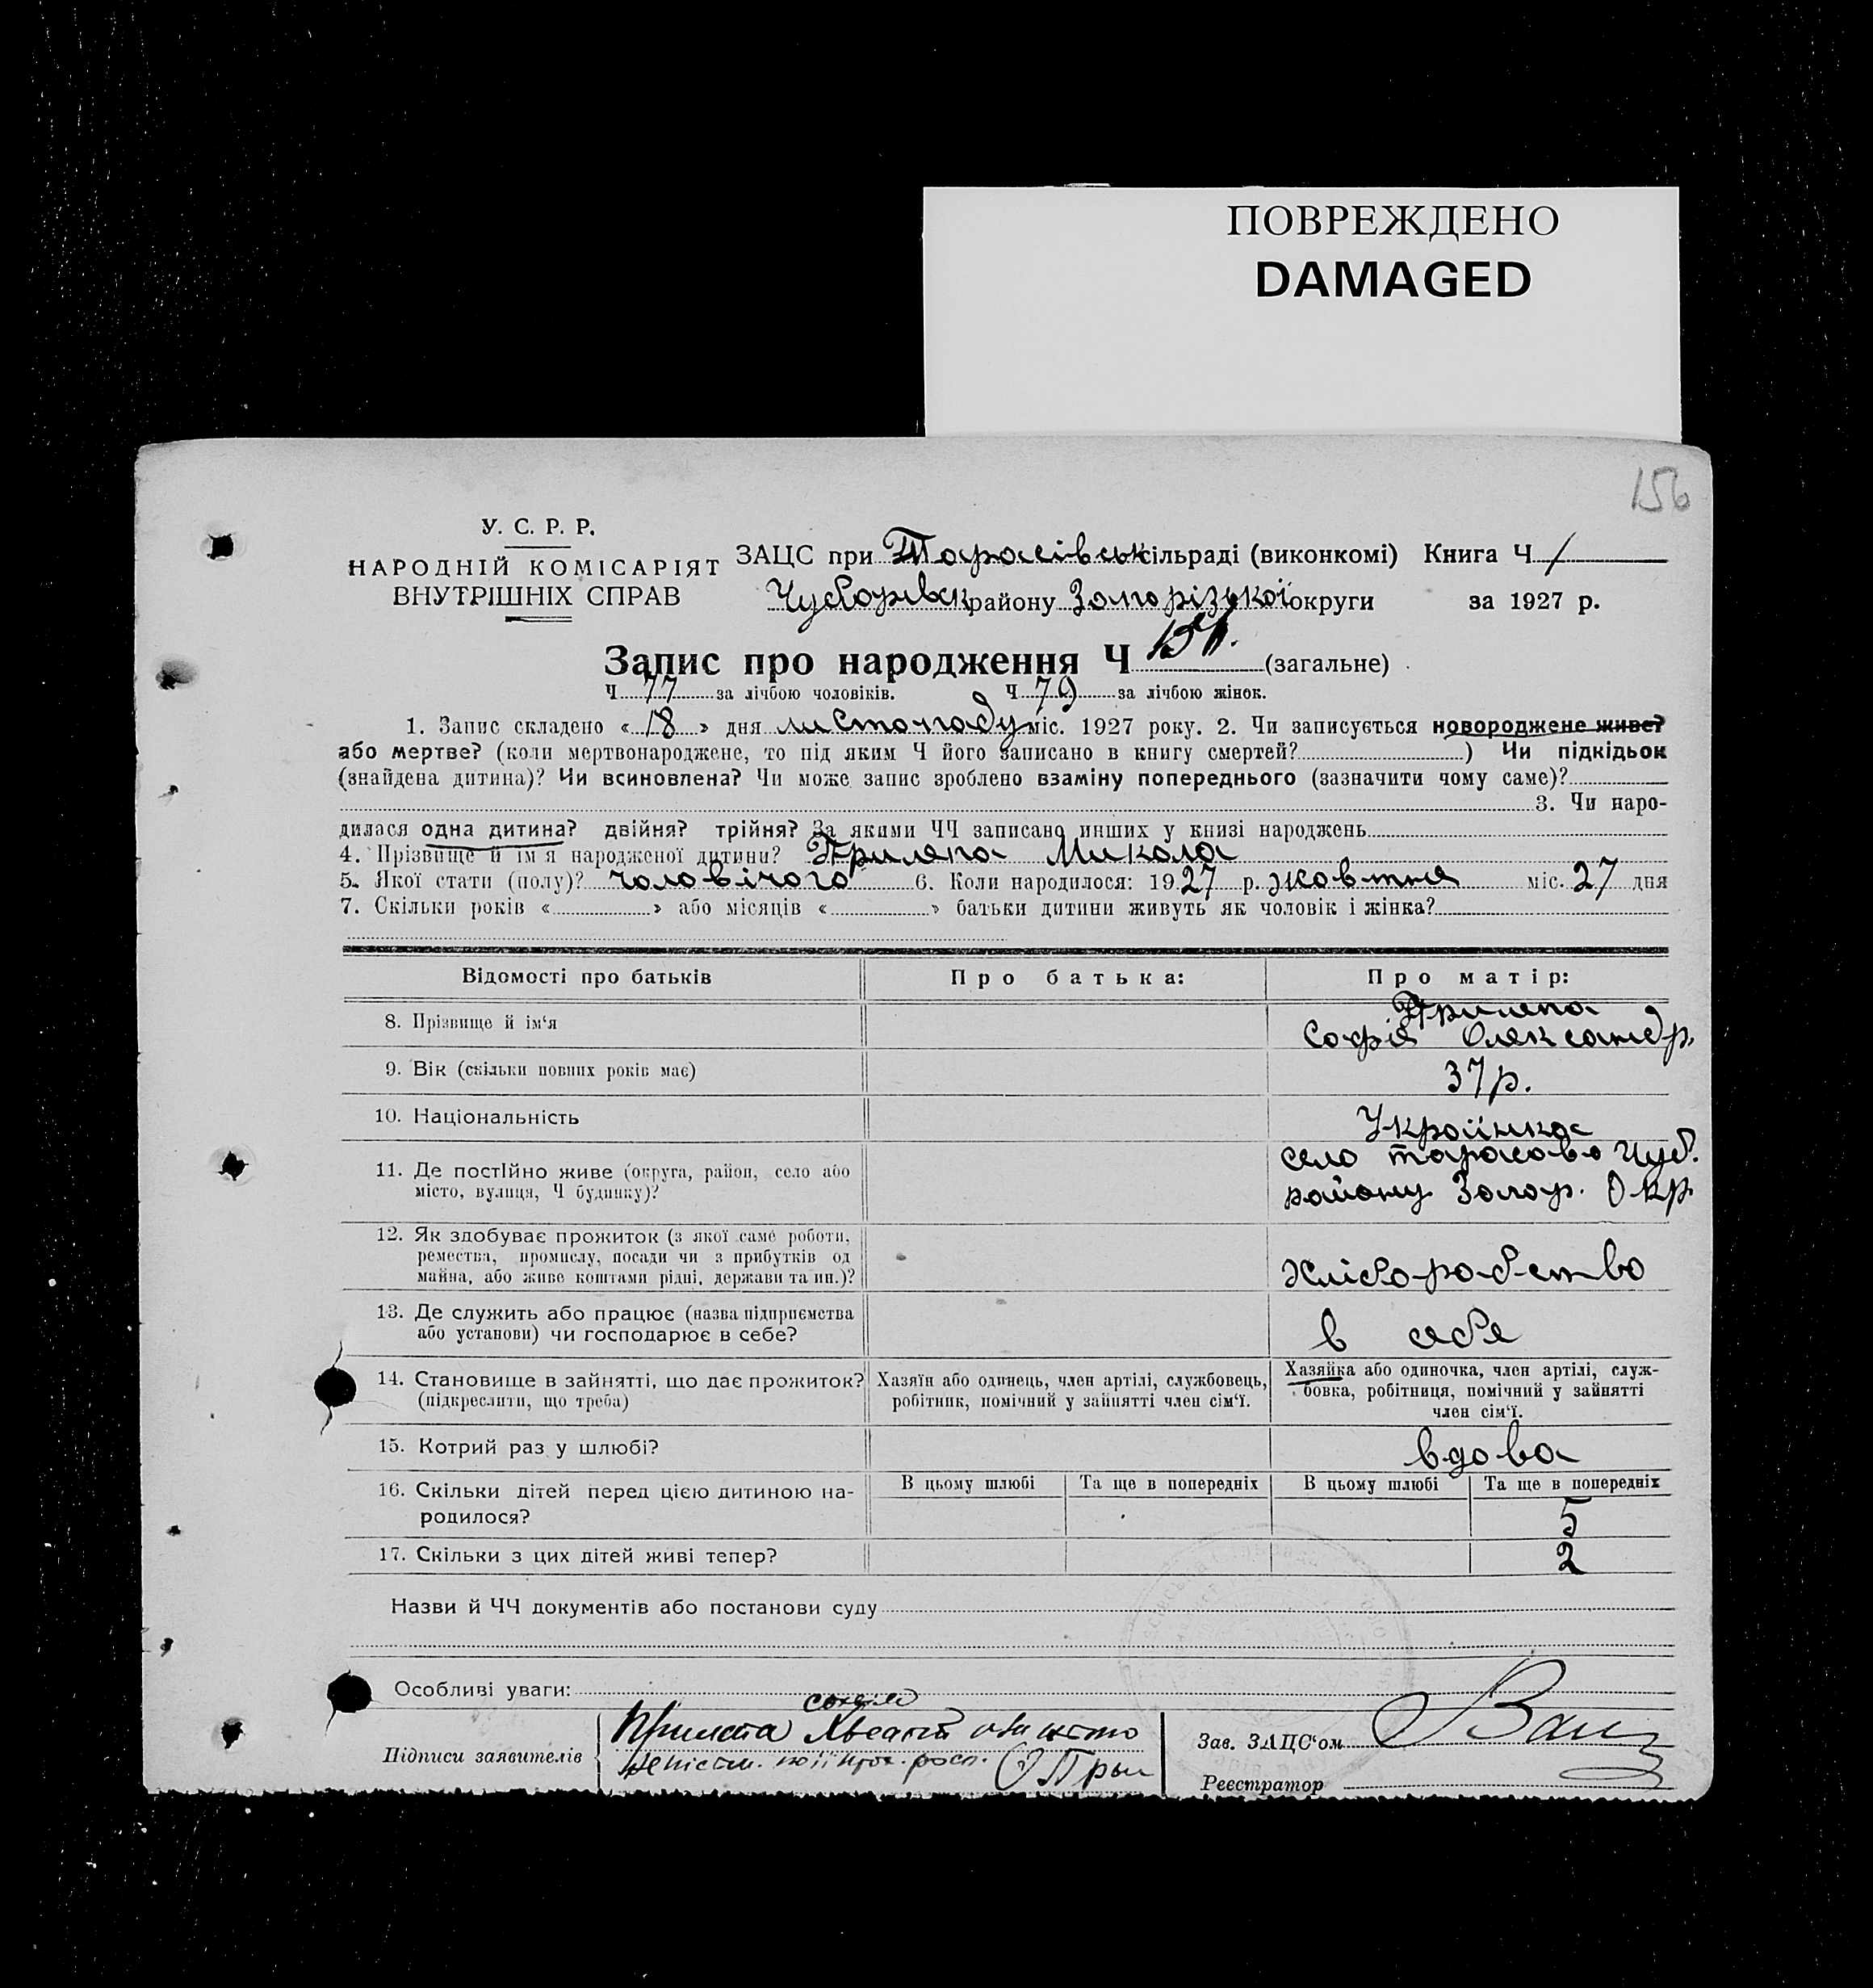 ПОВРЕЖДЕНО
DAMAGED
156
У. С. Р. Р.
НАРОДНІЙ КОМІСАРІЯТ
ВНУТРІШНІХ СПРАВ
ЗАЦС при Тарасівськ сільраді (виконкомі) Книга Ч. 1
Чубарівск району Запорізької округи за 1927 р.
Запис про народження Ч 156. (загальне)
Ч 77 за лічбою чоловіків. Ч 79 за лічбою жінок.
1. Запис складено « 18 » дня листопаду міс. 1927 року. 2. Чи записується новороджене живе?
або мертве? (коли мертвонароджене, то під яким Ч його записано в книгу смертей? ) Чи підкідьок
(знайдена дитина)? Чи всиновлена? Чи може запис зроблено взаміну попереднього (зазначити чому саме)?
3. Чи наро-
дилася одна дитина? двійня? трійня? За якими ЧЧ записано инших у книзі народжень
4. Прізвище й ім'я народженої дитини? Прилепа Микола
5. Якої стати (полу)? чоловічого 6. Коли народилося: 1927 р. жовтня міс. 27 дня
7. Скільки років « » або місяців « » батьки дитини живуть як чоловік і жінка?
Відомості про батьків Про батька: Про матір:
8. Прізвище й ім'я Прилепа
Софія Олександр.
9. Вік (скільки повних років має) 37 р.
10. Національність Українка
11. Де постійно живе (округа, район, село або
місто, вулиця, Ч будинку)?
село Тарасовка Чуб.
району Запор. Окр.
12. Як здобуває прожиток (з якої саме роботи,
ремества, промислу, посади чи з прибутків од
майна, або живе коштами рідні, держави та ин.)?
Хліборобство
13. Де служить або працює (назва підприємства
або установи) чи господарює в себе?
в себе
14. Становище в зайнятті, що дає прожиток?
(підкреслити, що треба)
Хазяїн або одинець, член артілі, службовець,
робітник, помічний у зайнятті член сім'ї.
Хазяйка або одиночка, член артілі, служ-
бовка, робітниця, помічний у зайнятті
член сім'ї.
15. Котрий раз у шлюбі? вдова
В цьому шлюбі Та ще в попередніх В цьому шлюбі Та ще в попередніх
16. Скільки дітей перед цією дитиною на-
родилося?
5
17. Скільки з цих дітей живі тепер? 2
Назви й ЧЧ документів або постанови суду
Особливі уваги:
Підписи заявителів
Зав. ЗАЦС'ом
Реєстратор